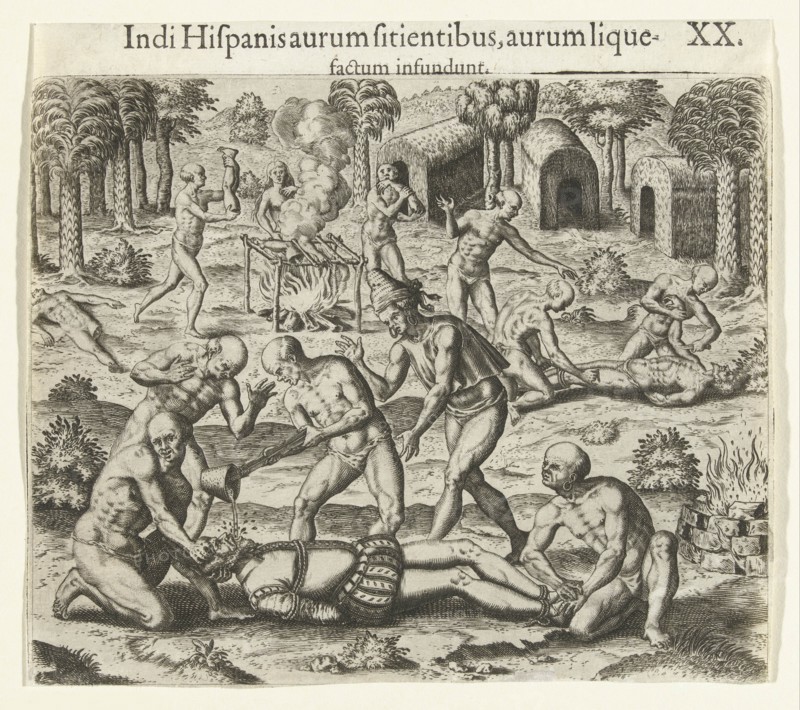 Indi Hiſpanis aurum ſitientibus, aurum lique- XX.
factum infundunt.